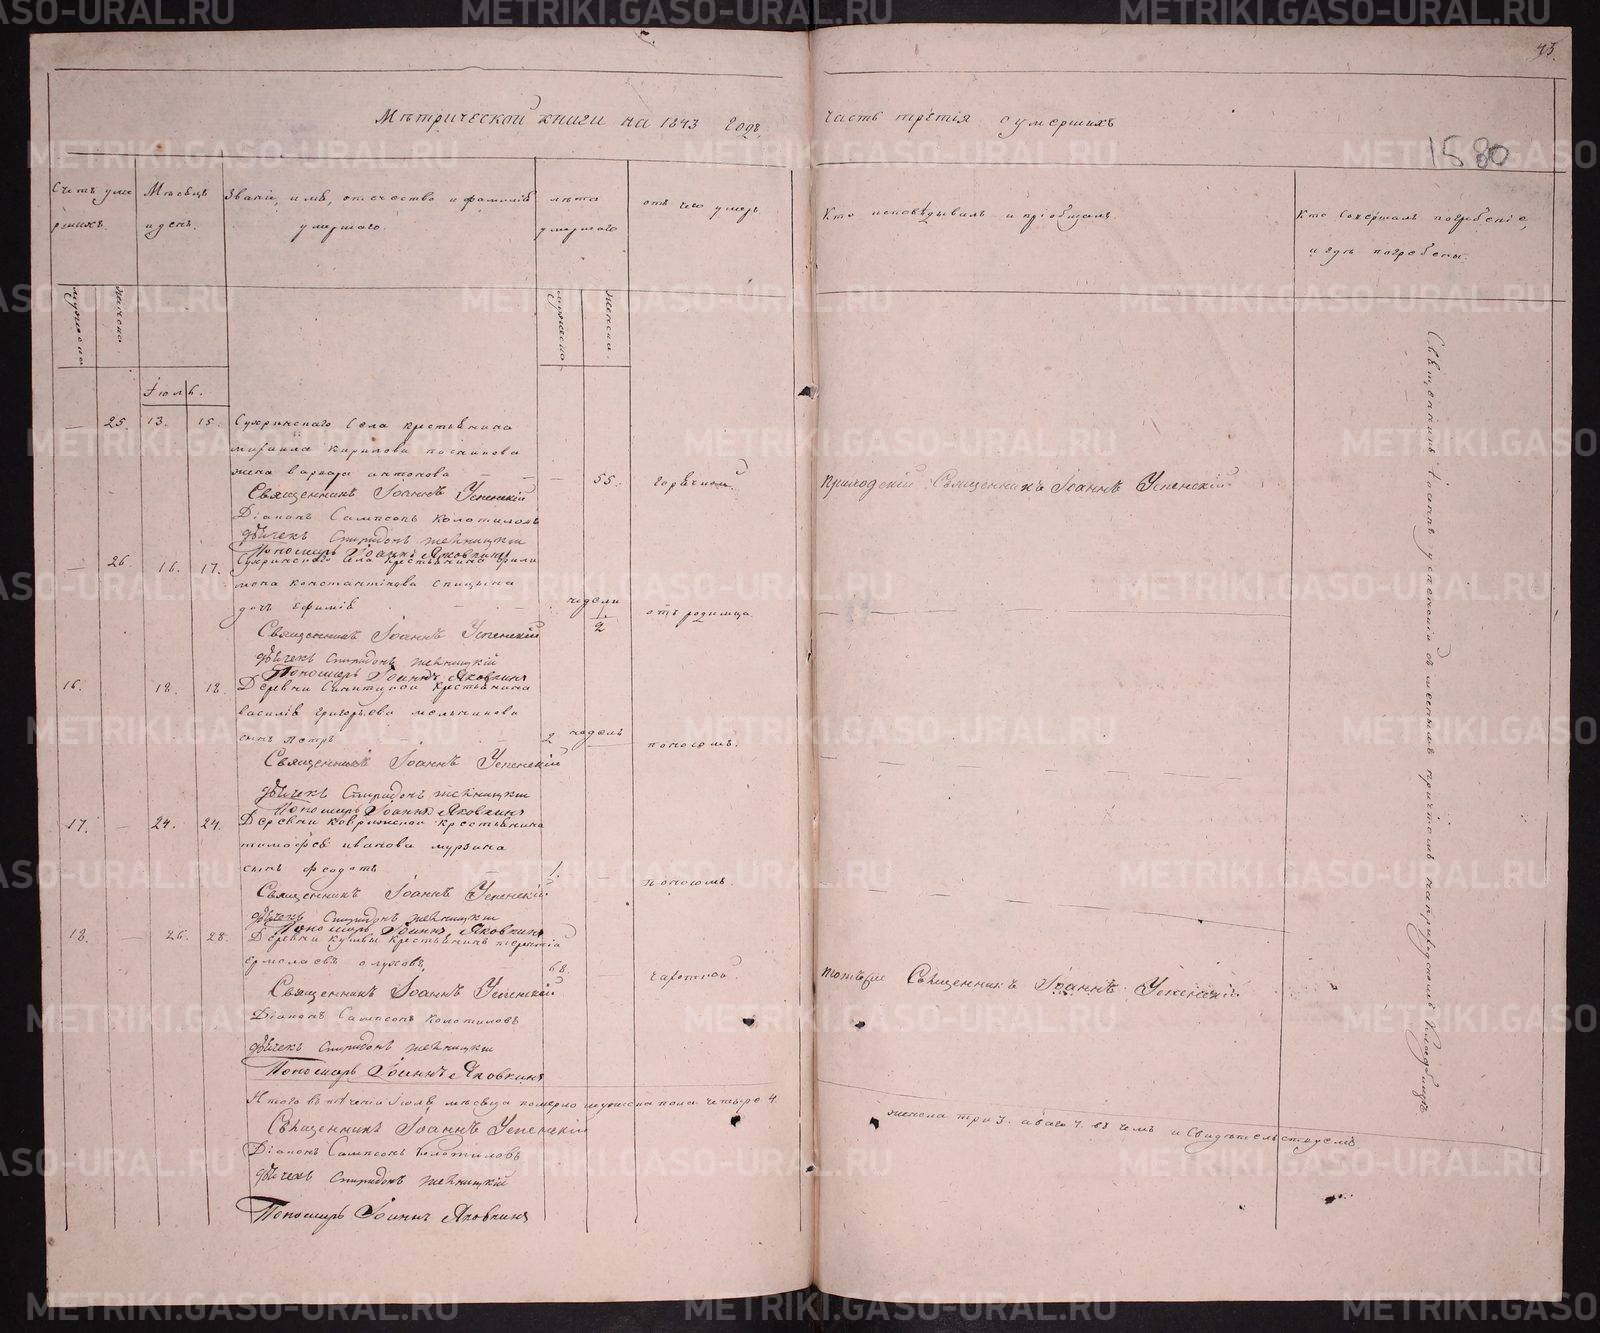 Метрической книги на 1843 годъ.
часть третія о умершихъ
93.
1580
Счетъ уме
ршихъ.
Мѣсяцъ
и день.
Званіе, имя, отчество и фамилія
умершаго.
лѣта
умершаго
отъ чего умеръ
Кто исповѣдывалъ и пріобщалъ
Кто совершалъ погребеніе,
и гдѣ погребены.
мужеска
женска
мужеска
женска
Іюль.
— 25. 13. 15. Сухринскаго Села крестьянина
михаила Кирилова постникова
жена варвара антонова — — 55. горячкой.
Приходскій Священникъ Іоаннъ Успенскій
Священникъ Іоаннъ Успенскій
Діаконъ Сампсонъ Колотиловъ
Дьячекъ Спиридонъ
Пономарь Іоаннъ Яковкинъ
— 26 16. 17. Сухринскаго Села крестьянина фили
мона константинова спицына
дочь Ефимія — недели 1/2 отъ родимца
Священникъ Іоаннъ Успенскій
Дьячекъ Спиридонъ
Пономарь Іоаннъ Яковкинъ
16. 18. 18. Деревни крестьянина
василія григорьева мельникова
сынъ петръ — 2 недель поносомъ.
Священникъ Іоаннъ Успенскій
Дьячекъ Спиридонъ
Пономарь Іоаннъ Яковкинъ
17. — 24. 24. Деревни крестьянина
тимофея иванова мурзина
сынъ федотъ — 1. — поносомъ.
Священникъ Іоаннъ Успенскій
Дьячекъ Спиридонъ
Пономарь Іоаннъ Яковкинъ
18. — 26. 28. Деревни крестьянинъ терентій
ермолаевъ 68. — чахоткой.
тотъже Священникъ Іоаннъ Успенскій
Священникъ Іоаннъ Успенскій
Діаконъ Сампсонъ Колотиловъ
Дьячекъ Спиридонъ
Пономарь Іоаннъ Яковкинъ
Священникъ Іоаннъ успенскій съ причтомъ на приходскомъ Кладбищѣ
Итого въ теченіи Іюля мѣсяца померло мужеска пола четыре 4.
женска три 3. обаго 7. въ чемъ и Свидѣтельствуемъ
Священникъ Іоаннъ Успенскій
Діаконъ Сампсонъ Колотиловъ
Дьячекъ Спиридонъ
Пономарь Іоаннъ Яковкинъ
METRIKI.GASO-URAL.RU